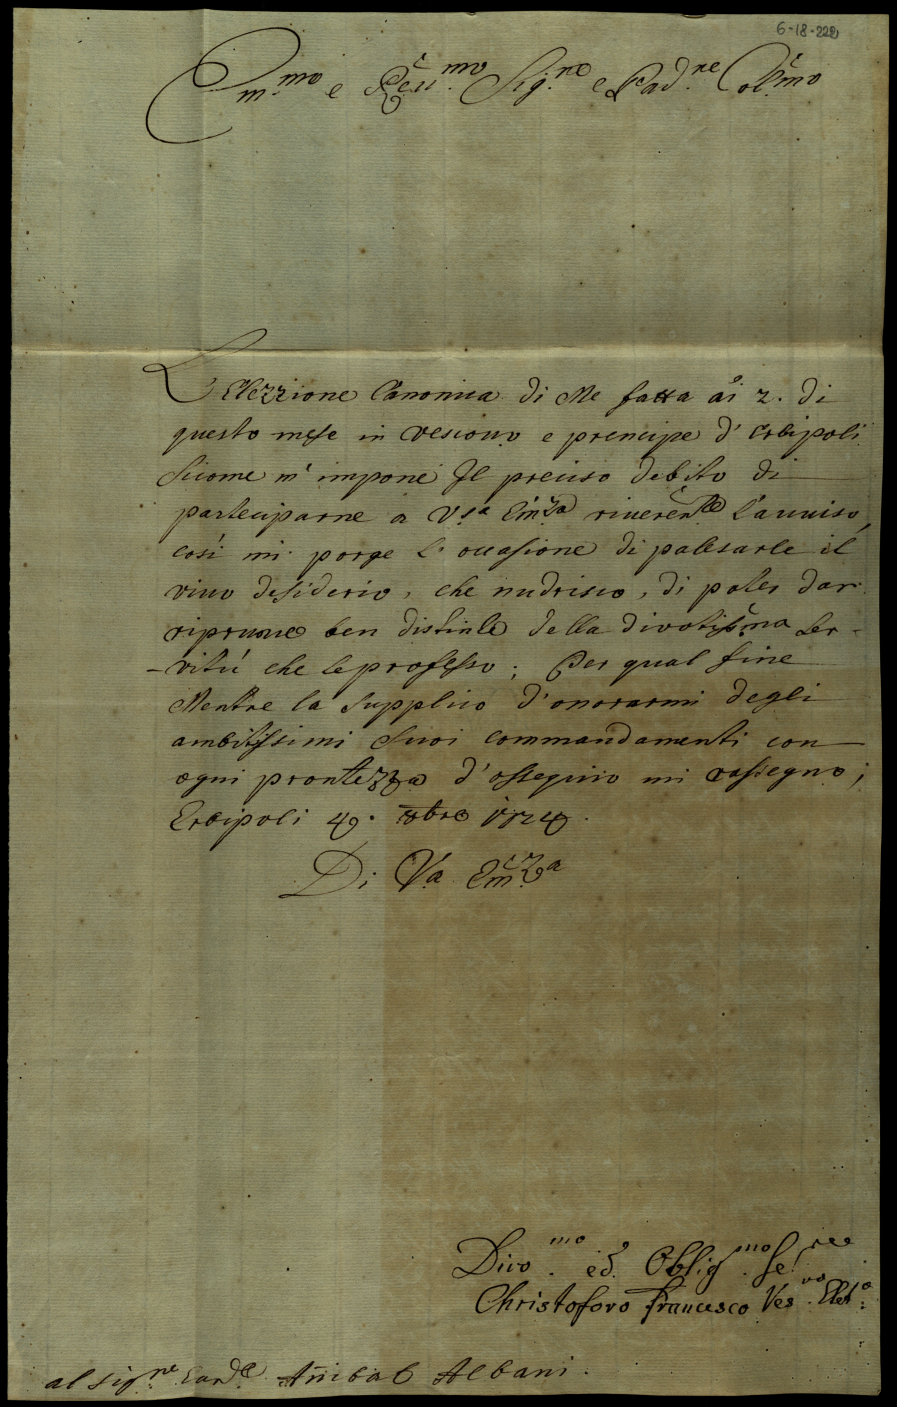 6-18-222
Em.mo e Reu.mo Sig.re e Pad.ne Col.mo
L'Elezzione Canonica di Me fatta ai 2. di
questo mese in vescouo e prencipe d'Erbipoli
sicome m'impone Il preciso debito di
parteciparne a V.ra Em.za riuerente l'auuiso,
così mi porge l'occasione di palesarle il
viuo desiderio, che nudrisco, di poter dar
ripruoue ben distinte della divotiss.ma Ser-
-vitù che le professo; Per qual fine
Mentre la supplico d'onorarmi degli
ambitissimi suoi commandamenti con
ogni prontezza d'ossequio mi rassegno;
Erbipoli 4. 8bre 1724.
Di V.a Em.za
Divo.mo ed Oblig.mo Se.re
Christoforo Francesco Ves.vo Elet.o
al Sig.re Card.le Anibal Albani.